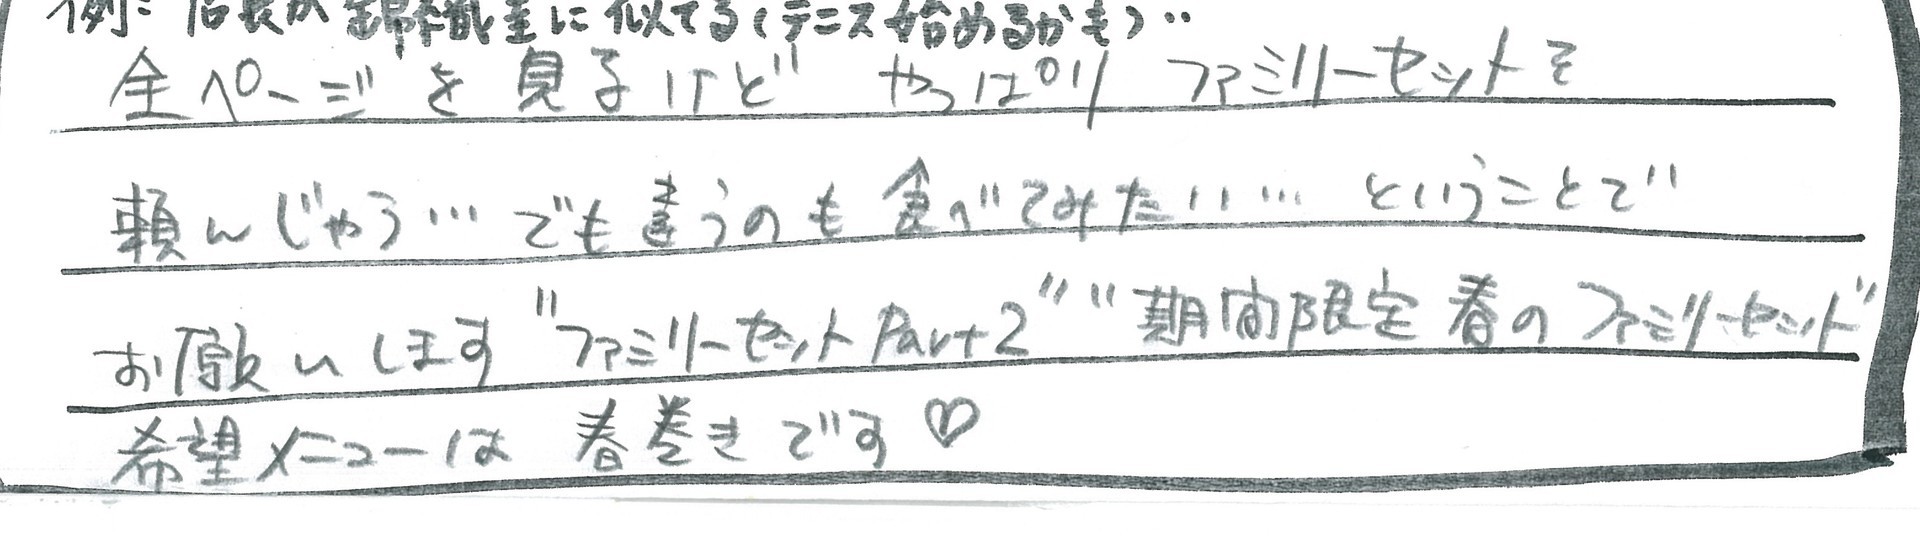 例：店長が錦織圭に似てる（テニス始めるかも）‥
全ページを見るけど やっぱり ファミリーセットを
頼んじゃう… でも違うのも食べてみたい… ということで
お願いします "ファミリーセットPart2" "期間限定 春のファミリーセット"
希望メニューは 春巻きです♡